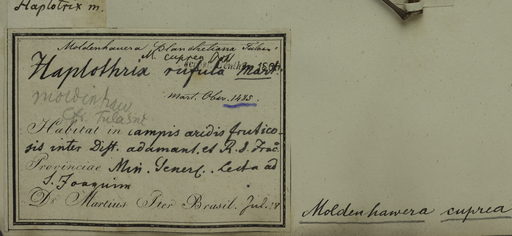 Haplotrix m.
Moldenhawera Blanchetiana Tulasn.
M cuprea
Haplothria rufula Mart.
Mart. Obs. 1435.
Moldenhaw
Habitat in campis aridis frutico-
sis inter Distr. adamant. et R. S. Franc.
Provinciae Min. Generl. Lecta ad
S. Joaquim
Dr. Martius Iter Brasil. Jul.
Moldenhawera cuprea